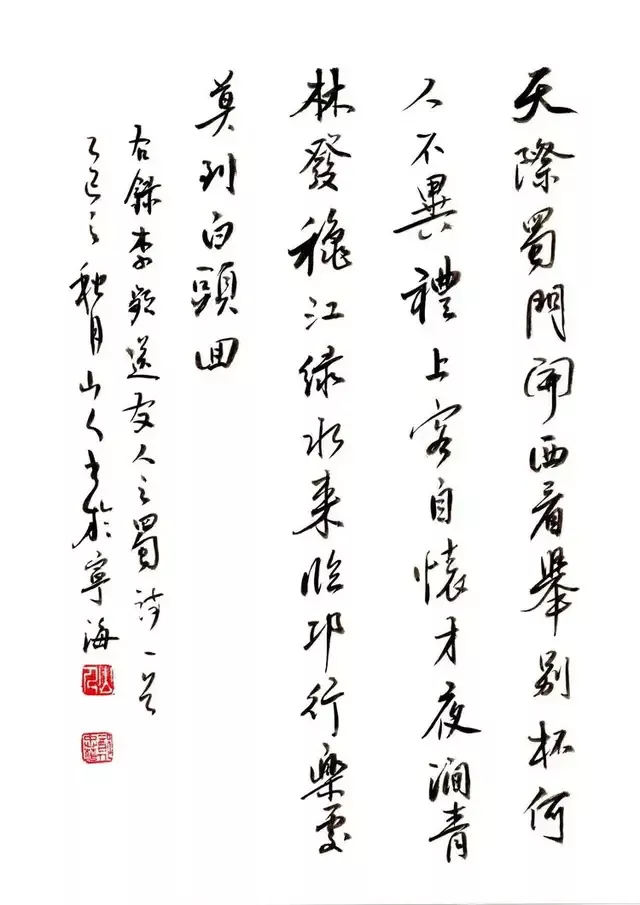 天際蜀門開西看舉別杯何
人不異禮上客自懷才夜澗青
林發穐江緑水來臨邛行樂處
莫到白頭囬
右錄李頻送友人之蜀詩一首
乙巳之秋月山人書於寧海